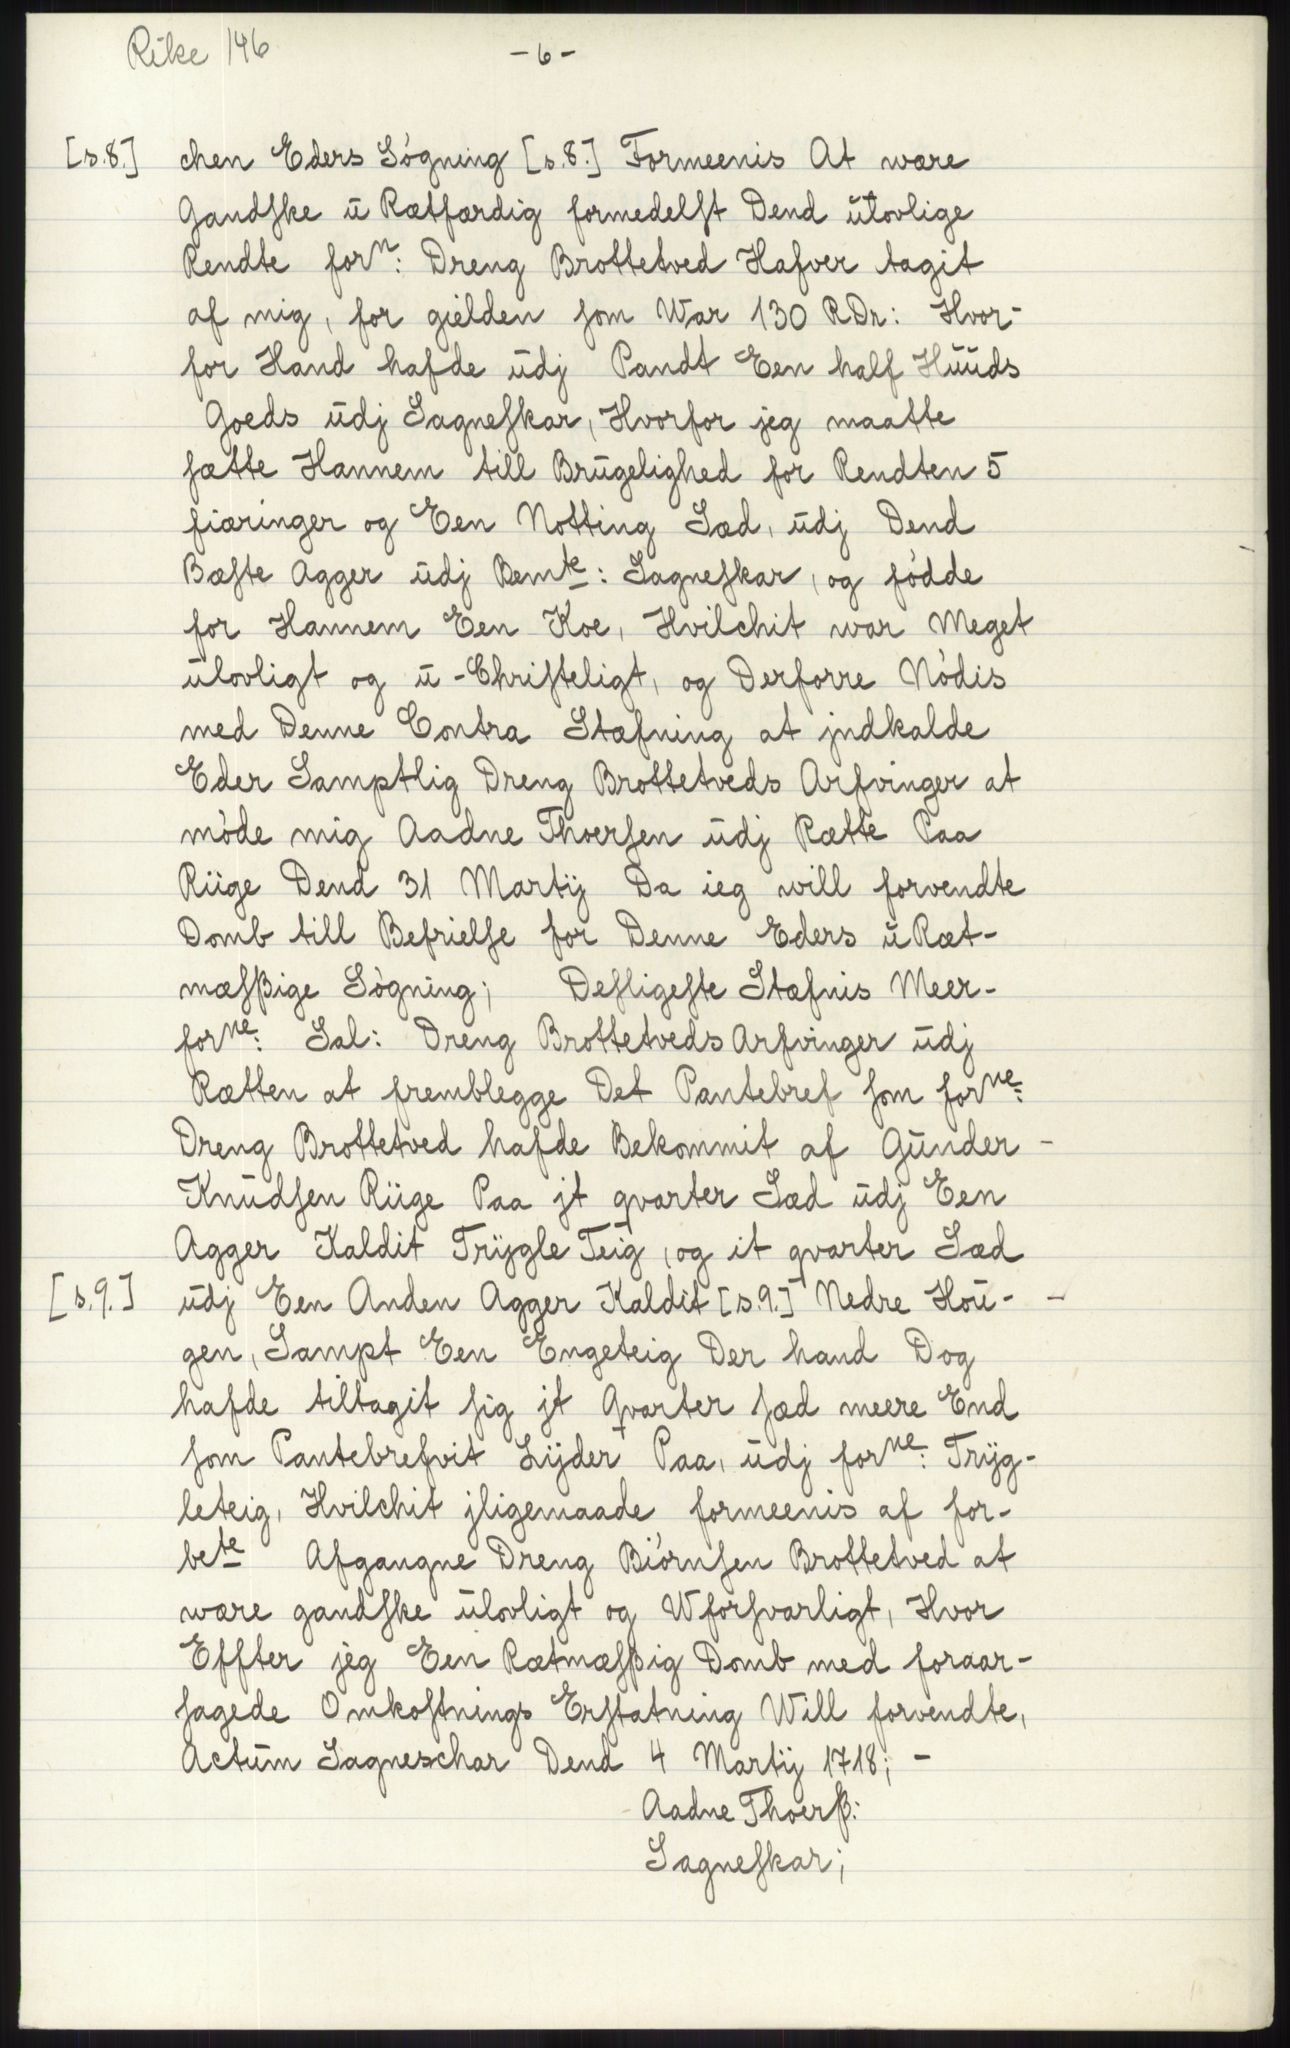 Rike 146
- 6 -
[s.8.] chen Eders Søgning [s.8.] Formeenis At være
Gandske ü Rætfærdig formedelst Dend ülovlige
Rendte forⁿ: Dreng Brottetved Hafver tagit
af mig, for gielden som War 130 RDr: Hvor-
for Hand hafde üdj Pandt Een half Hüüds
Goeds üdj Sagneskar, Hvorfor jeg maatte
sætte Hannem till Brügelighed for Rendten 5
fiæringer og Een Notting Sæd, üdj Dend
Bæste Agger üdj Bemte: Sagneskar, og fødde
for Hannem Een Koe, Hvilchit war Meget
ülovligt og ü-Christeligt, og Derforre Nødis
med Denne Contra Stæfning at jndkalde
Eder Samptlig Dreng Brottetveds Arfvinger at
møde mig Aadne Thoersen üdj Rætte Paa
Riige Dend 31 Martij Da ieg will forvendte
Domb till Befrielse for Denne Eders ü Ræt-
mæsßige Søgning; Desligeste Stæfnis Meer-
forne: Sal: Dreng Brottetveds Arfvinger üdj
Rætten at fremblegge Det Pantebref som forne:
Dreng Brottetved hafde Bekommit af Günder -
Knüdsen Riige Paa jt qvarter Sæd üdj Een
Agger Kaldit Trÿgle Teig, og it qvarter Sæd
[s.9.] üdj Een Anden Agger Kaldit [s.9.] Nedre Hoü- -
gen, Sampt Een Engeteig Der hand Dog
hafde tiltagit sig jt Qvarter sæd meere End
som Pantebrefvit Lÿder Paa, üdj forne: Trÿg-
leteig, Hvilchit jligemaade formeenis af for-
bete Afgangne Dreng Biørnsen Brottetved at
være gandske ülovligt og Wforsvarligt, Hvor
Effter jeg Een Rætmæsßig Domb med foraar-
sagede Omkostnings Erstatning Will forvendte,
Actüm Sagneschar Dend 4 Martij 1718; -
Aadne Thoerß:
Sagneskar;